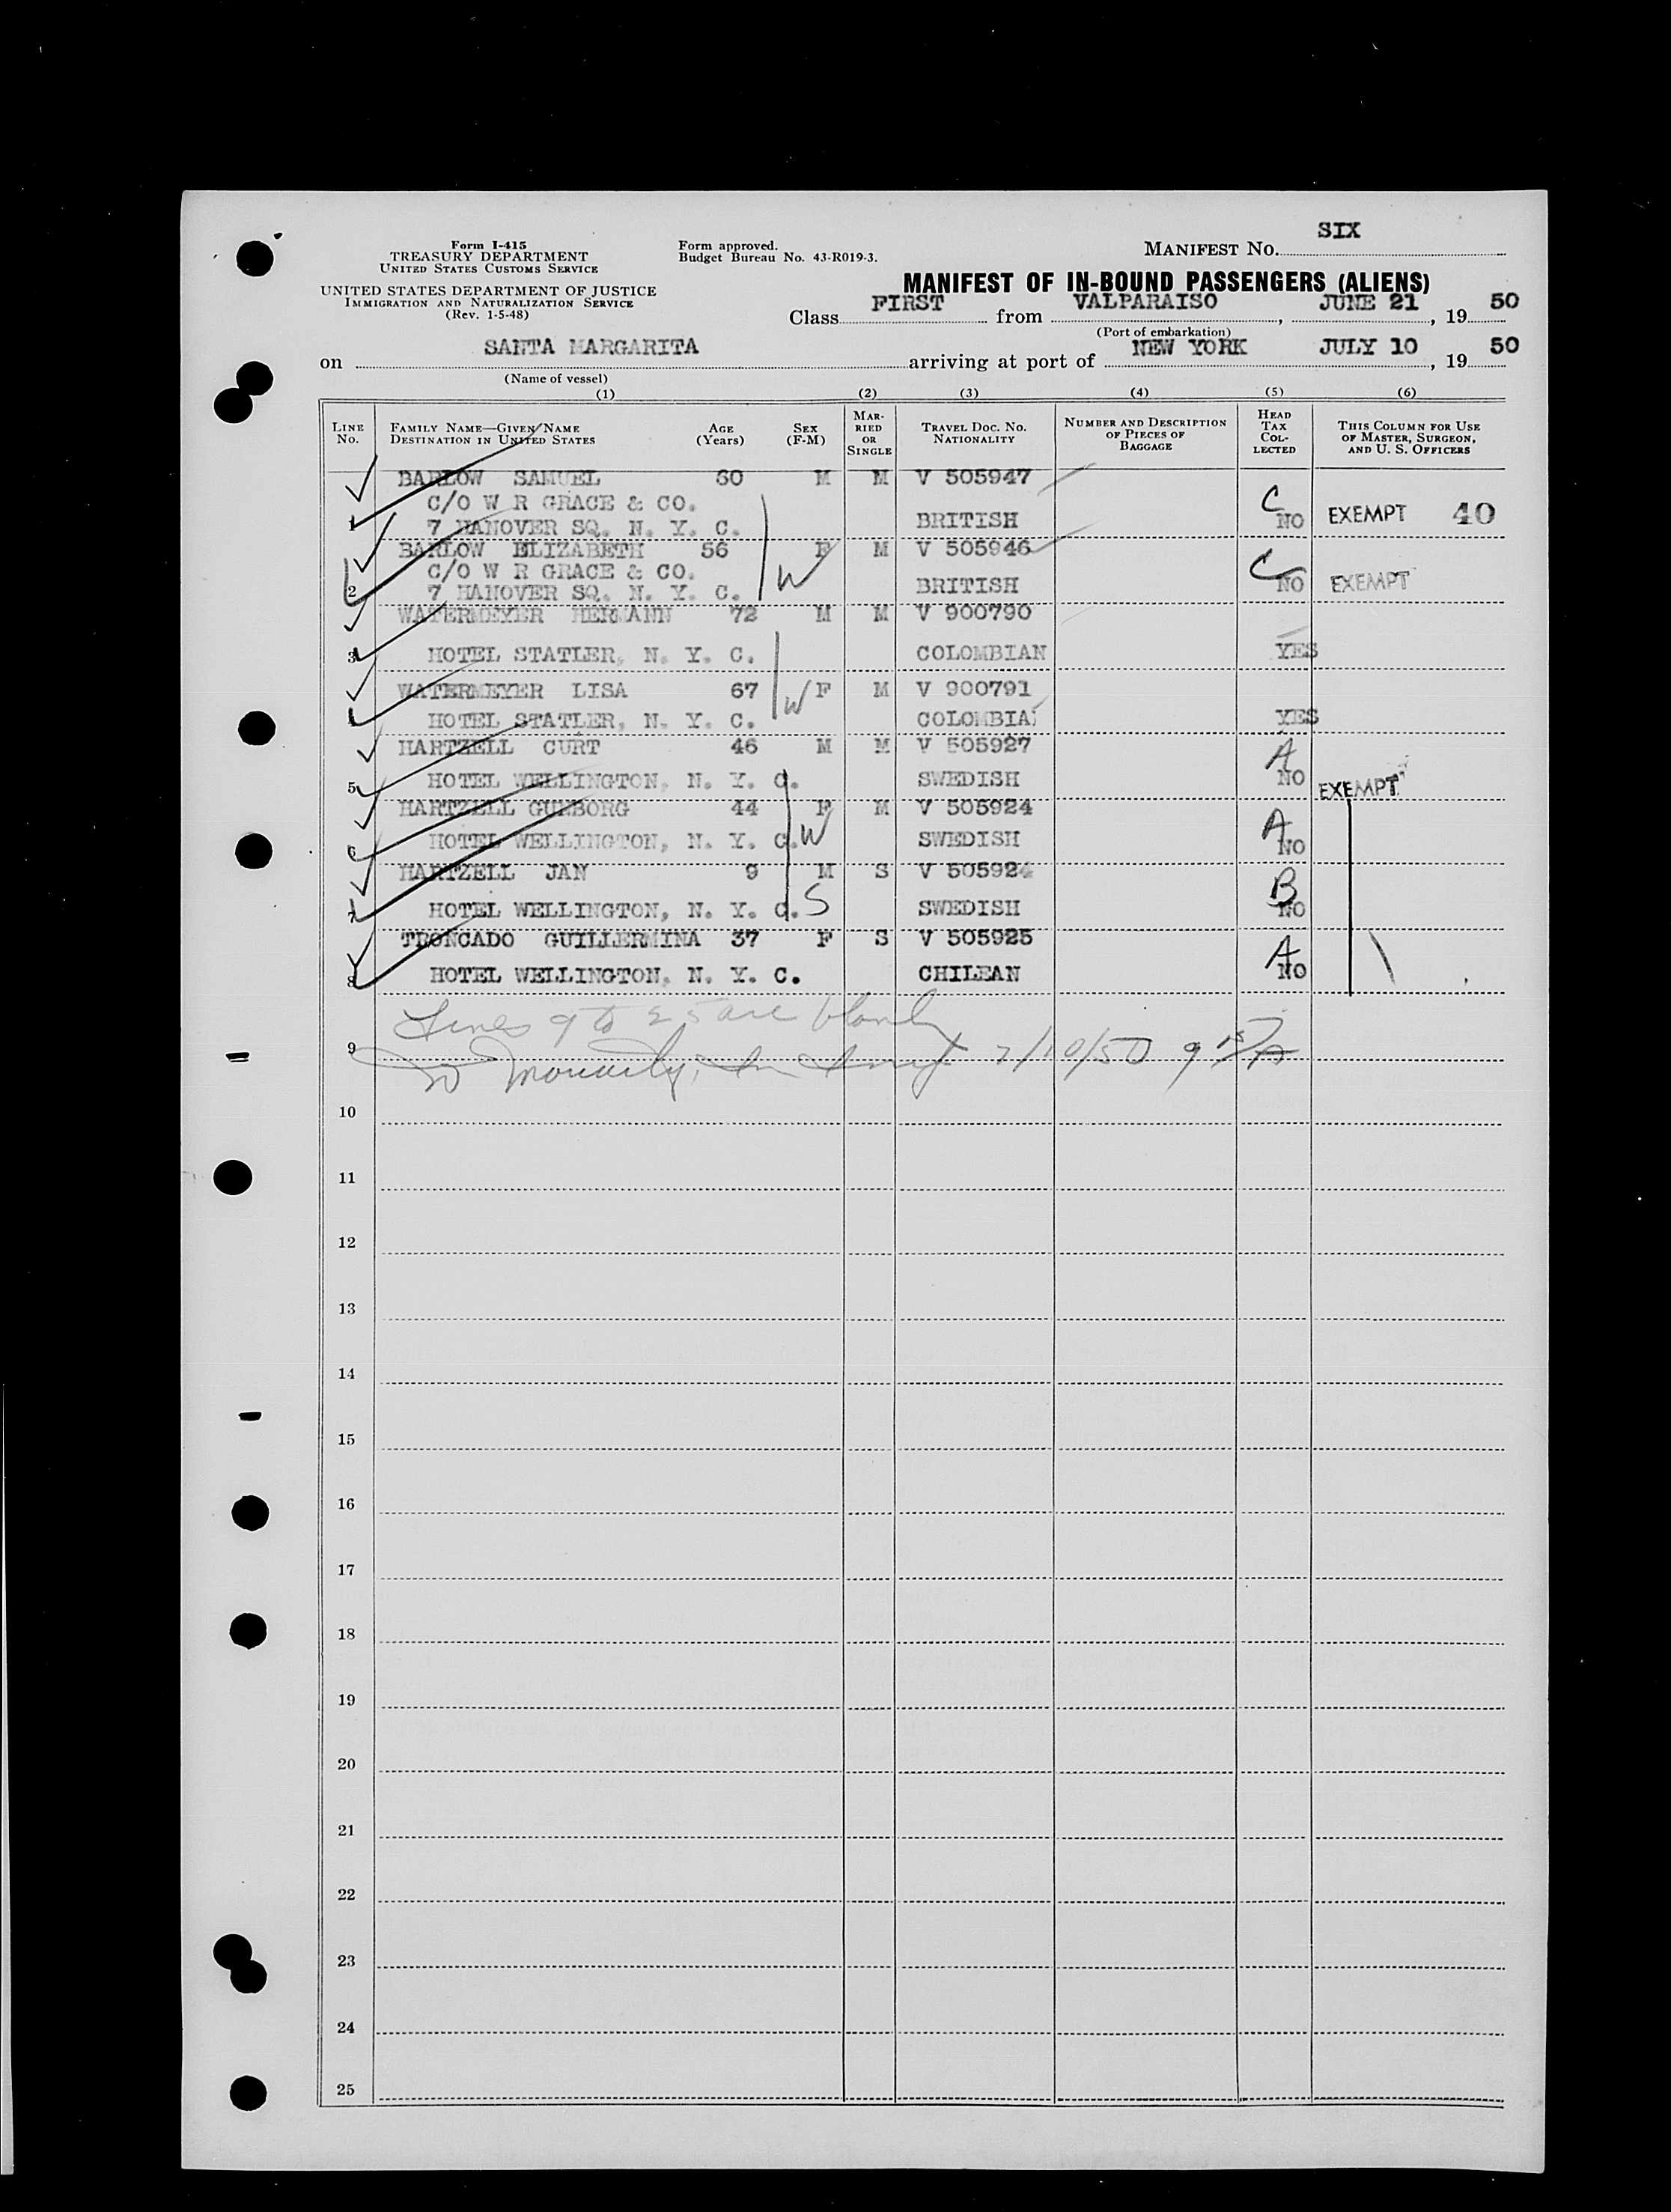 SIX
Form I-415
TREASURY DEPARTMENT
UNITED STATES CUSTOMS SERVICE
Form approved.
Budget Bureau No. 43-R019-3.
MANIFEST NO.
UNITED STATES DEPARTMENT OF JUSTICE
IMMIGRATION AND NATURALIZATION SERVICE
(Rev. 1-5-48)
MANIFEST OF IN-BOUND PASSENGERS (ALIENS)
Class FIRST from VALPARAISO, JUNE 21, 19 50
(Port of embarkation)
on SANTA MARGARITA arriving at port of NEW YORK JULY 10, 19 50
(Name of vessel)
(1) (2) (3) (4) (5) (6)
LINE NO. FAMILY NAME—GIVEN NAME DESTINATION IN UNITED STATES AGE (Years) SEX (F-M) MARRIED OR SINGLE TRAVEL DOC. NO. NATIONALITY NUMBER AND DESCRIPTION OF PIECES OF BAGGAGE HEAD TAX COLLECTED THIS COLUMN FOR USE OF MASTER, SURGEON, AND U. S. OFFICERS
BARLOW SAMUEL 60 M M V 505947
C/O W R GRACE & CO. C
1 7 HANOVER SQ. N. Y. C. BRITISH NO EXEMPT 40
BARLOW ELIZABETH 56 F M V 505946
C/O W R GRACE & CO. W C
2 7 HANOVER SQ. N. Y. C. BRITISH NO EXEMPT
WATERMEYER HERMANN 72 M M V 900790
3 HOTEL STATLER, N. Y. C. COLOMBIAN YES
WATERMEYER LISA 67 W F M V 900791
4 HOTEL STATLER, N. Y. C. COLOMBIAN YES
HARTZELL CURT 46 M M V 505927 A
5 HOTEL WELLINGTON, N. Y. C. SWEDISH NO EXEMPT
HARTZELL GUNBORG 44 F M V 505924 A
6 HOTEL WELLINGTON, N. Y. C. W SWEDISH NO
HARTZELL JAN 9 M S V 505924 B
7 HOTEL WELLINGTON, N. Y. C. S SWEDISH NO
TRONCADO GUILLERMINA 37 F S V 505925 A
8 HOTEL WELLINGTON, N. Y. C. CHILEAN NO
Lines 9 to 25 are blank
9 7/10/50
10
11
12
13
14
15
16
17
18
19
20
21
22
23
24
25